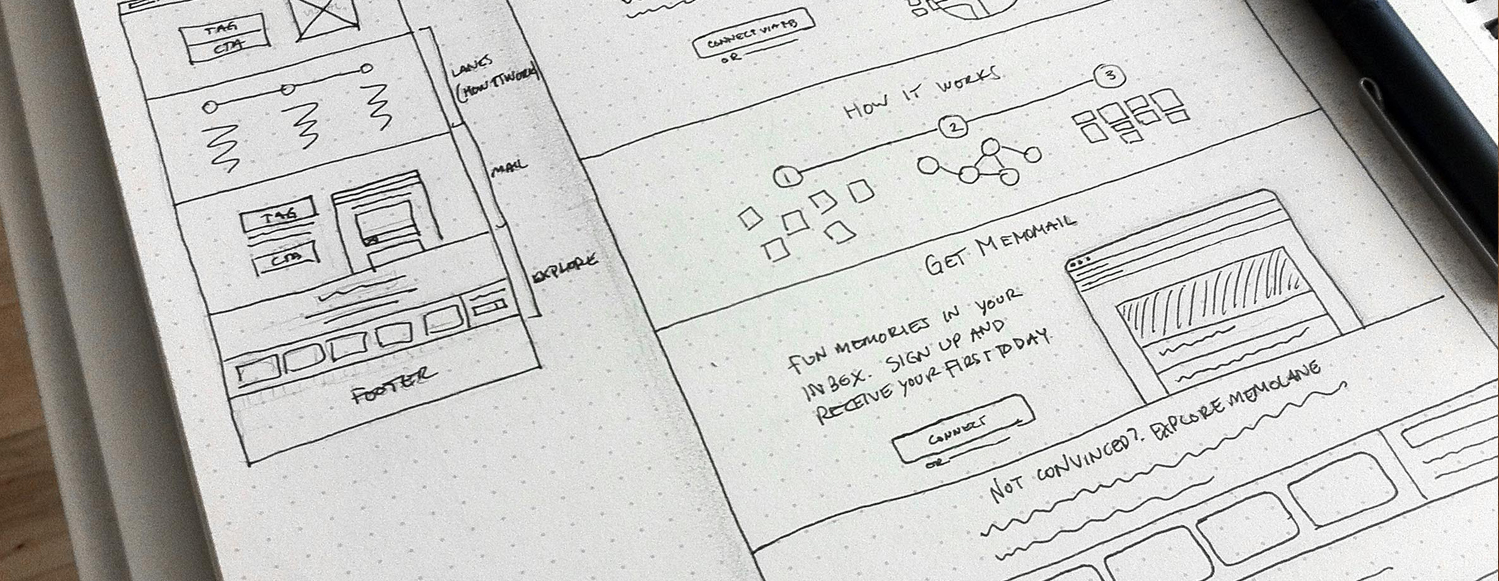 TAG
CTA
LANES
(HOW IT WORKS)
MAIL
TAG
CTA
EXPLORE
FOOTER
CONNECT VIA FB
OR
HOW IT WORKS
1
2
3
GET MEMOMAIL
FUN MEMORIES IN YOUR
INBOX. SIGN UP AND
RECEIVE YOUR FIRST TODAY.
CONNECT
OR
NOT CONVINCED? EXPLORE MEMOLANE